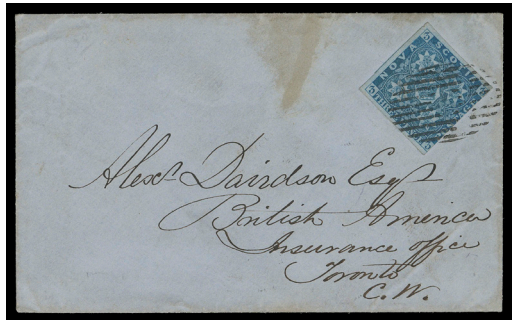 NOVA SCOTIA
Alexr Davidson Esqr
British America
Insurance office
Toronto
C.W.